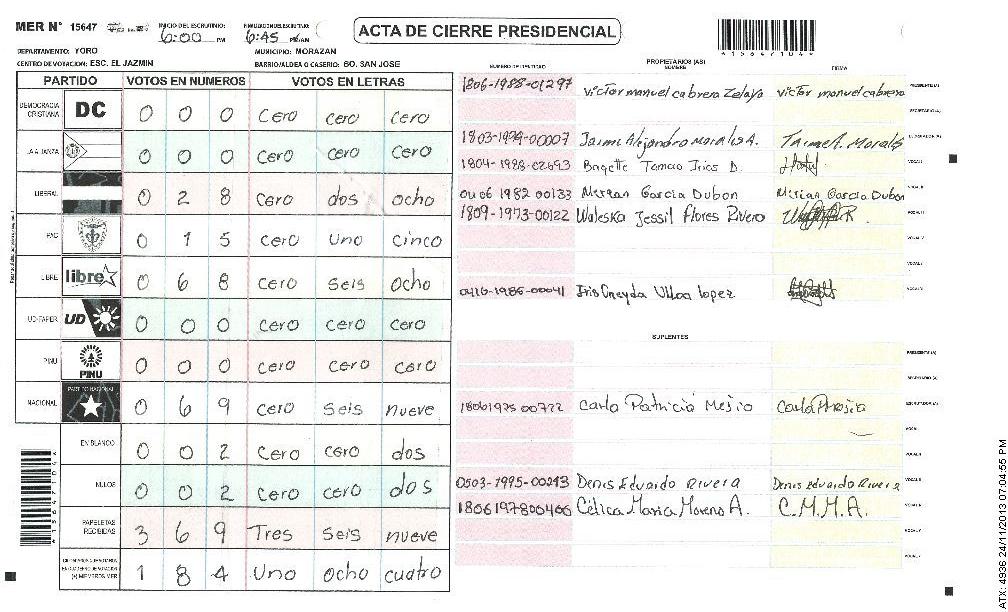 MER N° 15647
INICIO DEL ESCRUTINIO: 6:00 PM
FINALIZACION DEL ESCRUTINIO: 6:45 PM/AM
ACTA DE CIERRE PRESIDENCIAL
4156471044
DEPARTAMENTO: YORO
MUNICIPIO: MORAZAN
CENTRO DE VOTACION: ESC. EL JAZMIN
BARRIO/ALDEA O CASERIO: BO. SAN JOSE
PARTIDO VOTOS EN NUMEROS VOTOS EN LETRAS
DEMOCRACIA CRISTIANA DC 0 0 0 cero cero cero
LA ALIANZA 0 0 0 cero cero cero
LIBERAL 0 2 8 cero dos ocho
PAC 0 1 5 cero uno cinco
LIBRE libre 0 6 8 cero seis ocho
UD-FAPER UD 0 0 0 cero cero cero
PINU PINU 0 0 0 cero cero cero
NACIONAL PARTIDO NACIONAL 0 6 9 cero seis nueve
EN BLANCO 0 0 2 cero cero dos
NULOS 0 0 2 cero cero dos
PAPELETAS RECIBIDAS 3 6 9 Tres seis nueve
(+) MIEMBROS MER 1 8 4 uno ocho cuatro
NUMERO DE IDENTIDAD
PROPIETARIOS (AS)
NOMBRE
FIRMA
1806-1988-01297 victor manuel cabrera Zelaya victor manuel cabrera PRESIDENTE (A)
SECRETARIO (A)
1803-1979-00007 Jaime Alejandro Morales A. Jaime A. Morales ESCRUTADOR (A)
1804-1988-02693 VOCAL I
0406 1982 00133 Mirian Garcia Dubon Mirian Garcia Dubon VOCAL II
1809-1973-00122 Waleska Jessil Flores Rivera VOCAL III
VOCAL IV
VOCAL V
0416-1986-00041 Iris Oneyda Ulloa lopez VOCAL VI
SUPLENTES
PRESIDENTE (A)
SECRETARIO (A)
18061975 00722 Carla Patricia Mejia Carla P Mejia ESCRUTADOR (A)
VOCAL I
VOCAL II
0503-1995-00243 Denis Eduardo Rivera Denis Eduardo Rivera VOCAL III
1806197800406 Celica Maria Moreno A. C.M.M.A. VOCAL IV
VOCAL V
VOCAL VI
ATX: 4936 24/11/2013 07:04:55 PM